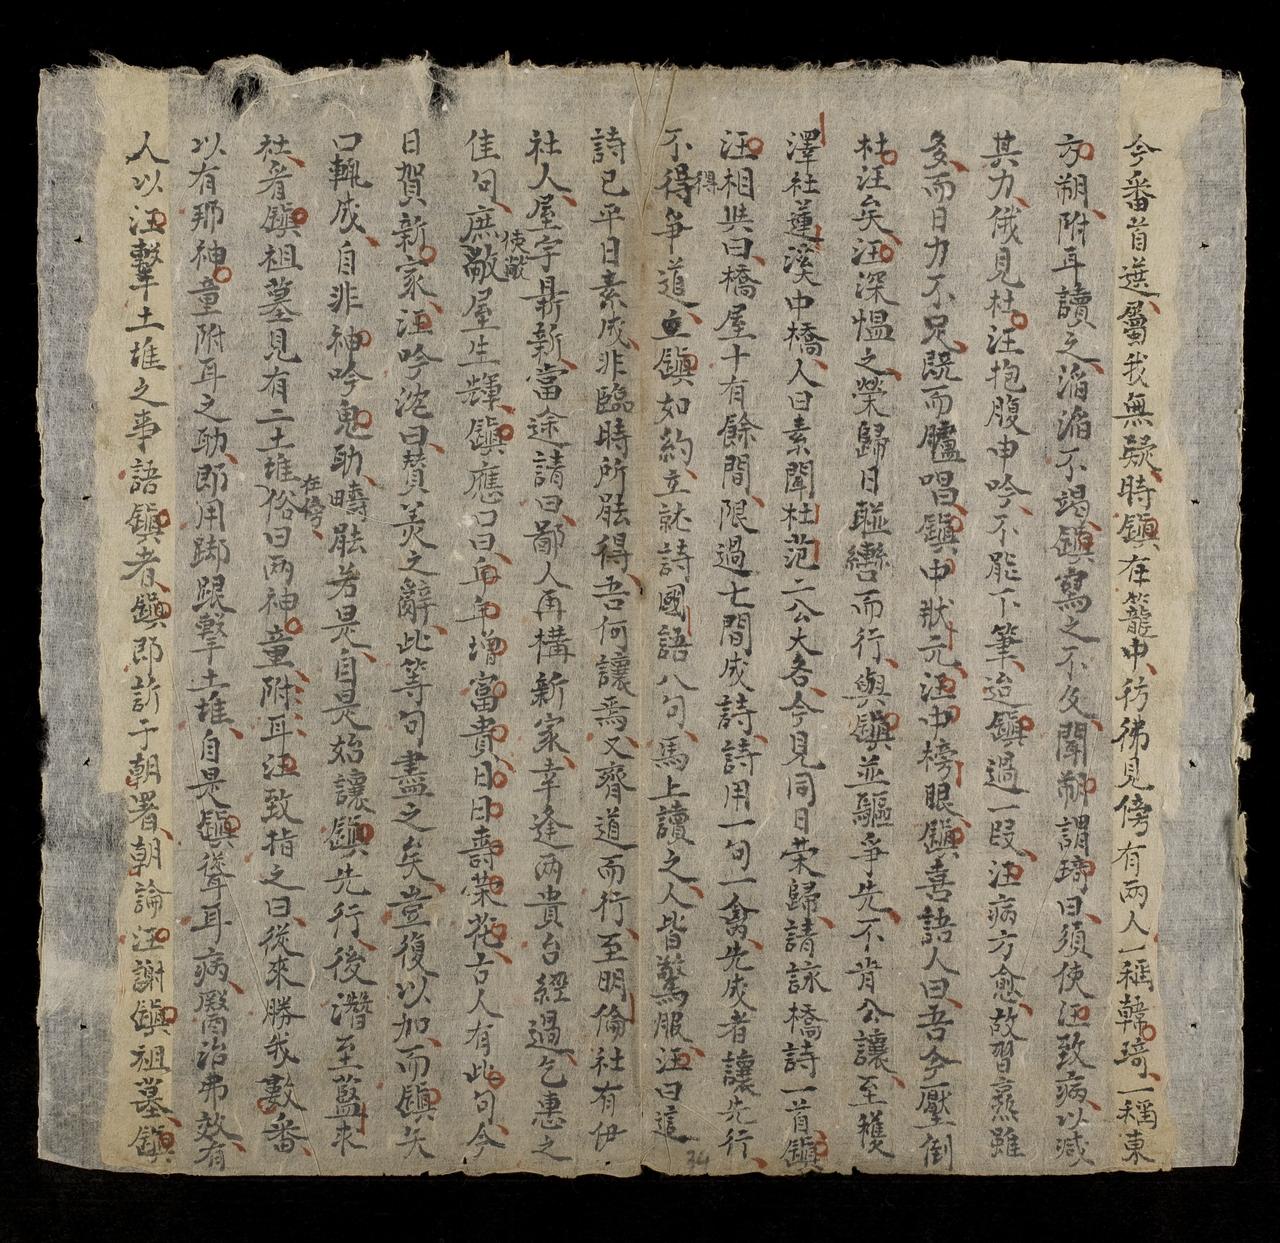 今番首選屬我無疑時鎮在籠中彷彿見傍有兩人一稱韓琦一稱東
方朔附耳讀之滔滔不竭鎮寫之不及聞朔謂琦曰須使汪致病以减
其力俄見杜汪抱腹申吟不能下筆迨鎮過一段汪病方愈故習藝雖
多而日力不足既而臚唱鎮中狀元汪中榜眼鎮喜語人曰吾今壓倒
杜汪矣汪深愠之榮歸日聯轡而行與鎮並驅爭先不肯公讓至獲
澤社蓮溪中橋人曰素聞杜范二公大名今見同日荣歸請詠橋詩一首鎮
汪相與曰橋屋十有餘間限過七間成詩詩用一句一禽先成者讓先行
不得得爭道亟鎮如約立就詩國語八句馬上讀之人皆驚服汪曰這
詩已平日素成非臨時所能得吾何讓焉又齊道而行至明倫社有伊
社人屋宇鼎新當途請曰鄙人再構新家幸逢兩貴台經過乞惠之
佳句庶敝使敝屋生輝鎮應口曰年年增富貴日日壽荣花古人有此句今
日賀新家汪吟沈曰賛美之辭此等句盡之矣豈復以加而鎮矢
口輒成自非神吟鬼助疇能若是自是始讓鎮先行後潛至藍求
社看鎮祖墓見有二土堆在傍俗曰兩神童附耳汪致指之曰從來勝我數番
以有那神童附耳之助即用脚跟擊土堆自是鎮聾耳病醫治弗效有
人以汪擊土堆之事語鎮者鎮即訴于朝署朝論汪謝鎮祖墓鎮
34